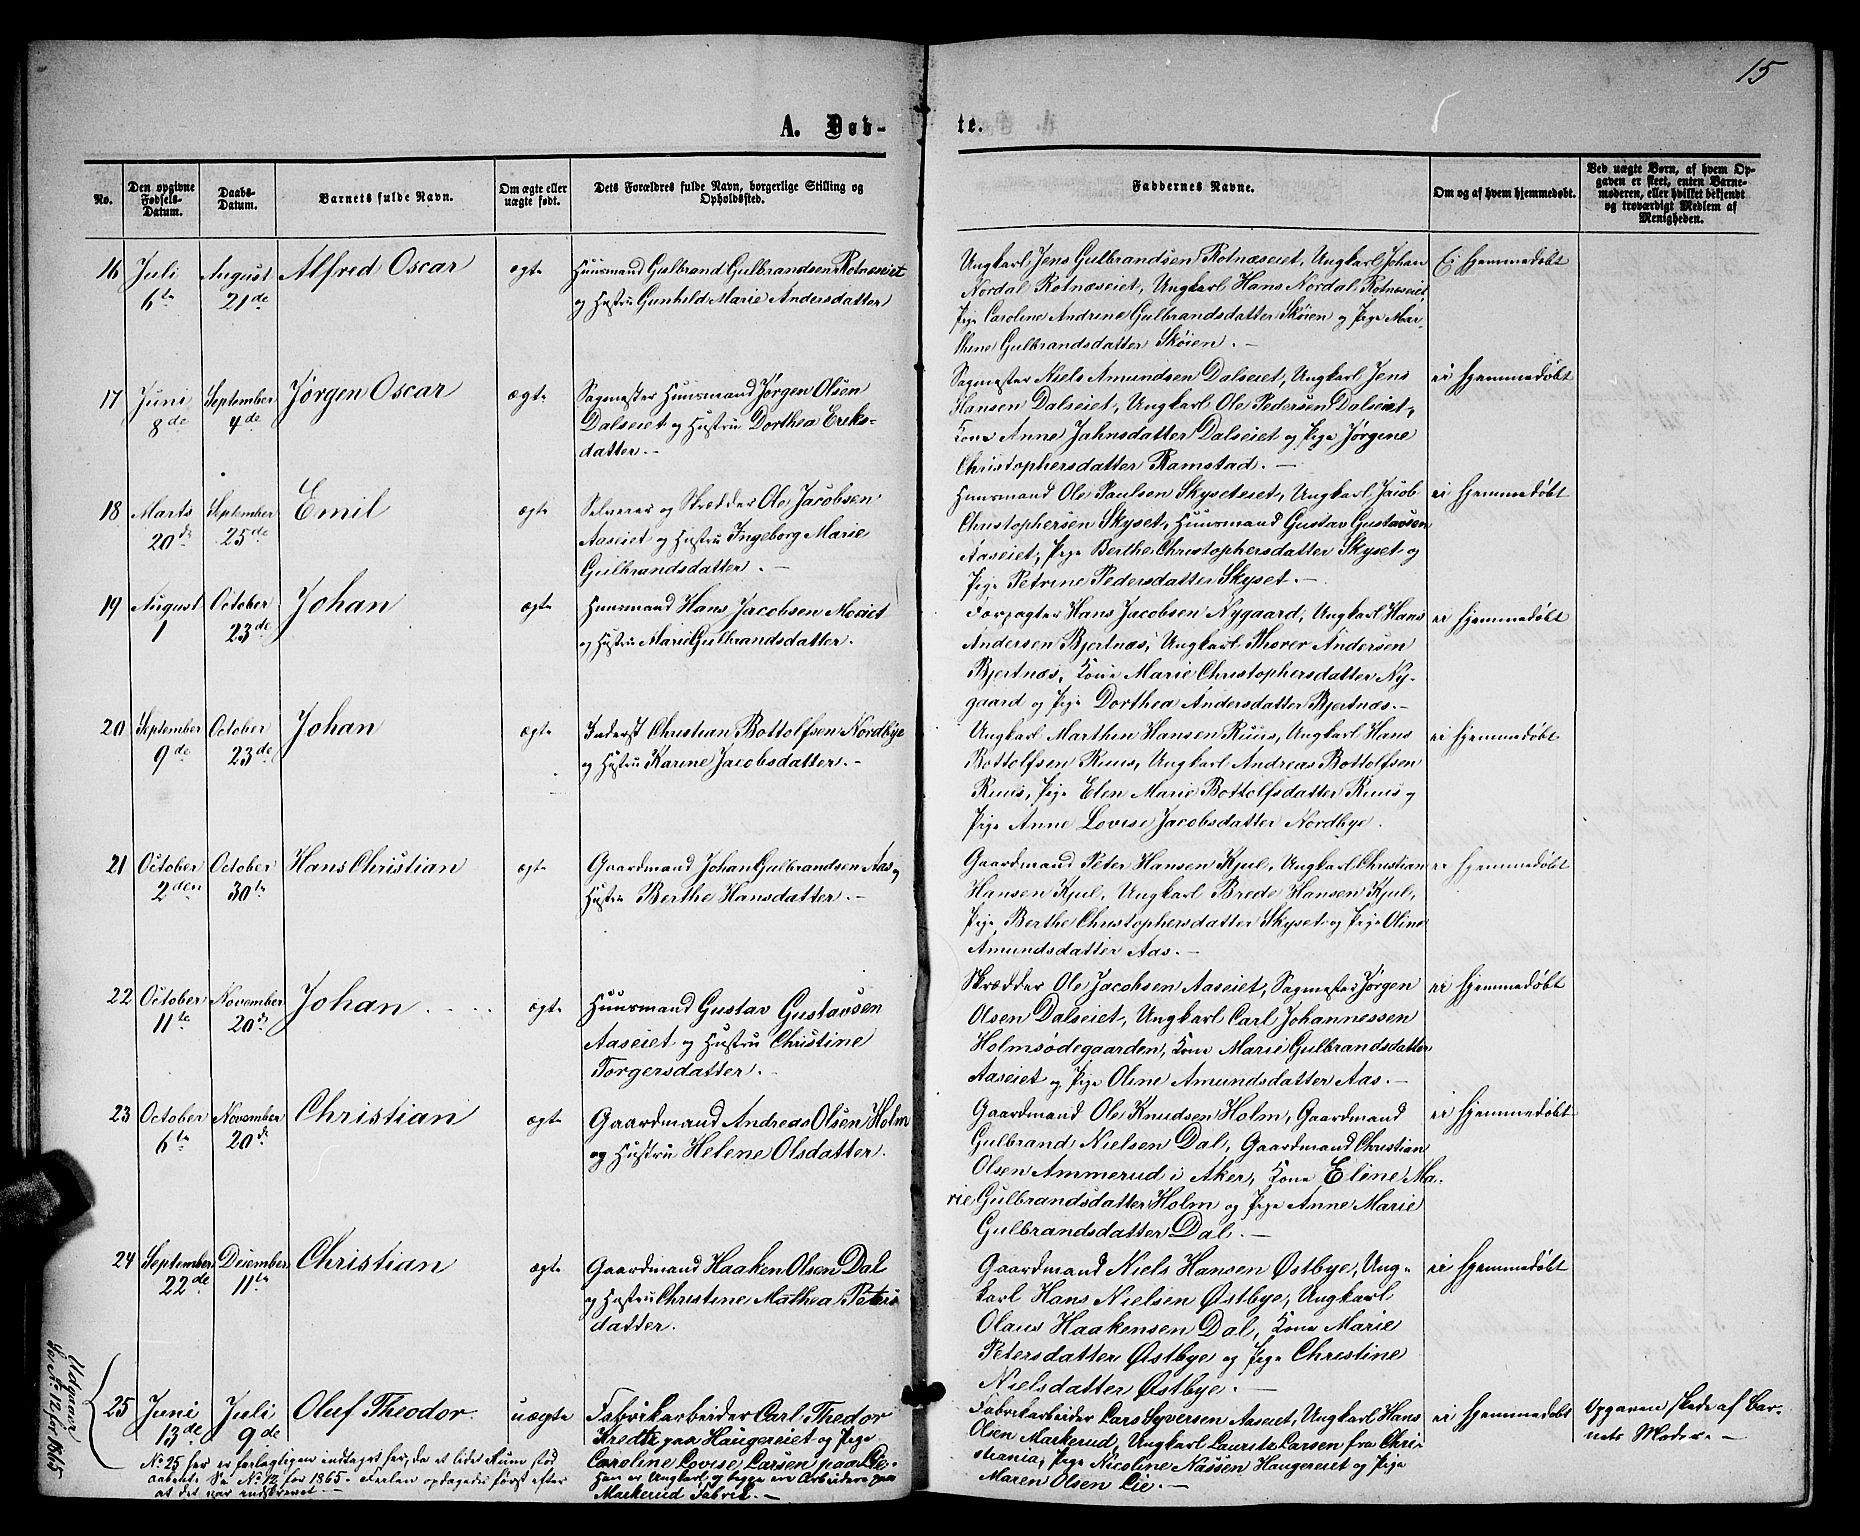 15
A. Døb-
te.
No.
Den opgivne Fødsels-Datum.
Daabs-Datum.
Barnets fulde Navn.
Om ægte eller uægte født.
Dets Forældres fulde Navn, borgerlige Stilling og Opholdssted.
Faddernes Navne.
Om og af hvem hjemmedøbt.
Ved uægte Børn, af hvem Opgaven er skeet, enten Barnemoderen, eller hvilket bekjendt og troværdigt Medlem af Menigheden.
16 Juli 6te August 21de Alfred Oscar ægte
Huusmand Gulbrand Gulbrandsen Rotneseiet
og Hustru Gunhild Marie Andersdatter
Ungkarl Jens Gulbrandsen Rotnæseiet, Ungkarl Johan
Nordal Rotnæseiet, Ungkarl Hans Nordal Rotnæseiet,
Pige Caroline Andrine Gulbrandsdatter Skøien og Pige Mar-
thine Gulbrandsdatter Skøien.-
Ei hjemmedøbt
17 Juni 8de September 4de Jørgen Oscar ægte
Sagmester Huusmand Jørgen Olsen
Dalseiet og Hustru Dorthea Ereks-
datter.-
Sagmester Niels Amundsen Dalseiet, Ungkarl Jens
Hansen Dalseiet, Ungkarl Ole Pedersen Dalseiet,
Kone Anne Jahnsdatter Dalseiet og Pige Jørgine
Christophersdatter Ramstad.-
ei hjemmedøbt
18 Marts 20de September 25de Emil ægte
Selveier og Skrædder Ole Jacobsen
Aaseiet og Hustru Ingeborg Marie
Gulbrandsdatter.-
Huusmand Ole Paulsen Skyseteiet, Ungkarl Jacob
Christophersen Skyset, Huusmand Gustav Gustavsen
Aaseiet, Pige Berthe Christophersdatter Skyset og
Pige Petrine Pedersdatter Skyset.-
ei hjemmedøbt
19 August 1 October 23de Johan ægte
Huusmand Hans Jacobsen Moeiet
og Hustru Marie Gulbrandsdatter.
Forpagter Hans Jacobsen Nygaard, Ungkarl Hans
Andersen Bjertnæs, Ungkarl Thorer Andersen
Bjertnæs, Kone Marie Christophersdatter Ny-
gaard og Pige Dorthea Andersdatter Bjertnæs.-
ei hjemmedøbt
20 September 9de October 23de Johan ægte
Inderst Christian Bottolfsen Nordbye
og Hustru Karine Jacobsdatter.-
Ungkarl Marthin Hansen Ruus, Ungkarl Hans
Bottolfsen Ruus, Ungkarl Andreas Bottolfsen
Ruus, Pige Elen Marie Bottolfsdatter Ruus og
Pige Anne Lovise Jacobsdatter Nordbye.
ei hjemmedøbt
21 October 2den October 30te Hans Christian ægte
Gaardmand Johan Gulbrandsen Aas og
Hustru Berthe Hansdatter.-
Gaardmand Peter Hansen Kjul, Ungkarl Christian
Hansen Kjul, Ungkarl Brede Hansen Kjul,
Pige Berthe Christophersdatter Skyset og Pige Oline
Amundsdatter Aas.-
ei hjemmedøbt
22 October 11te November 20de Johan ægte
Huusmand Gustav Gustavsen
Aaseiet og Hustru Christine
Torgersdatter.-
Skrædder Ole Jacobsen Aaseiet, Sagmester Jørgen
Olsen Dalseiet, Ungkarl Carl Johannessen
Holmsødegaarden, Kone Marie Gulbrandsdatter
Aaseiet og Pige Oline Amundsdatter Aas.-
ei hjemmedøbt
23 October 6te November 20de Christian ægte
Gaardmand Andreas Olsen Holm
og Hustru Helene Olsdatter.
Gaardmand Ole Knudsen Holm, Gaardmand
Gulbrand Nielsen Dal, Gaardmand Christian
Olsen Ammerud i Aker, Kone Eline Ma-
rie Gulbrandsdatter Holm og Pige Anne Marie
Gulbrandsdatter Dal.-
ei hjemmedøbt
24 September 22de December 11te Christian ægte
Gaardmand Haaken Olsen Dal
og Hustru Christine Mathea Peters
datter.
Gaardmand Niels Hansen Østbye, Ung-
karl Hans Nielsen Østbye, Ungkarl
Olaus Haakensen Dal, Kone Marie
Petersdatter Østbye og Pige Christine
Nielsdatter Østbye.-
ei hjemmedøbt
Udgaaer
See No 12 for 1865
25 Juni 13de Juli 9de Oluf Theodor. uægte
Fabrikarbeider Carl Thedor
paa Haugereiet og Pige
Caroline Lovise Larsen paa Lie.
Han er Ungkarl og begge ere Arbeidere paa
Markerud Fabrik.-
Fabrikarbeider Lars Syversen Aaseiet, Ungkarl Hans
Olsen Markerud, Ungkarl Lauritz Larsen fra Chri-
stiania, Pige Nicoline Nassen Haugereiet og Pige
Maren Olsen Lie.-
ei hjemmedøbt
Opgaven skede af Bar-
nets Moder.-
No 25 her er feilagtigen indtaget her, da et lidet Rum stod
aabent. Se No 12 for 1865.- Feilen opdagedes først efter
at det var indskrevet.-